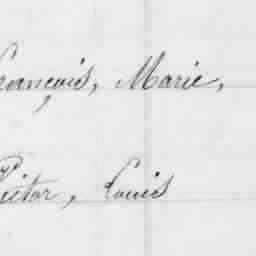 François, Marie,
Victor, Louis